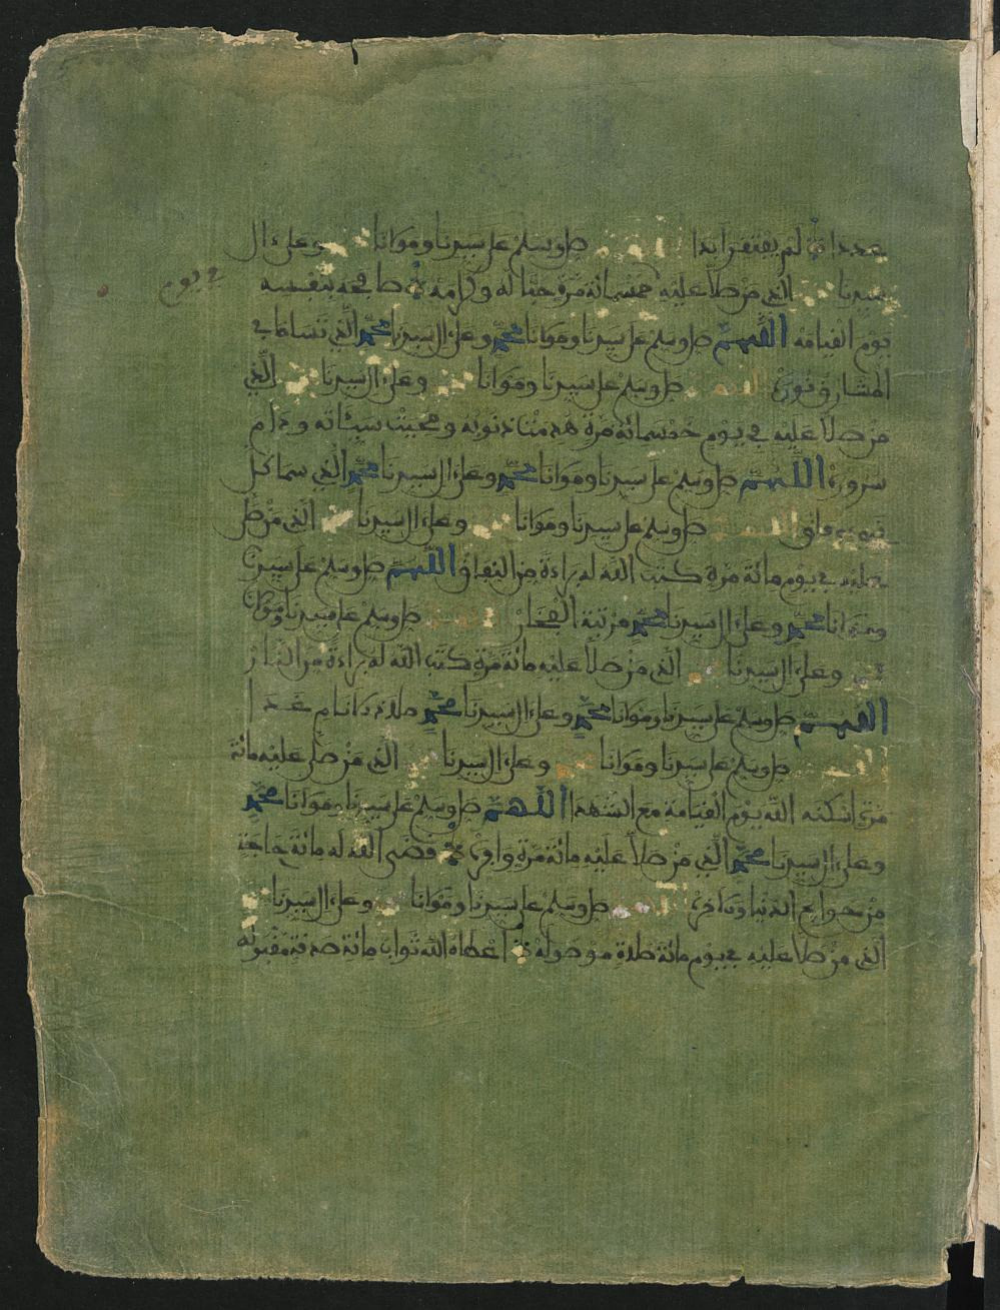 لم يفتقر ابدا صل وسلم على سيدنا ومولانا وعلى ءال
في يوم
سيدنا الذي من صلا عليه خمسمائة مرة حبا له وكرامة صافحه بنفسه
يوم القيامة اللهم صل وسلم على سيدنا ومولانا محمد وعلى ءال سيدنا محمد الذي تساطع في
المشارق نوره صل وسلم على سيدنا ومولانا وعلى ءال سيدنا الذي
من صلا عليه في يوم خمسمائة مرة هدمت ذنوبه ومحيت سيئاته ودام
سروره اللهم صل وسلم على سيدنا ومولانا محمد وعلى ءال سيدنا محمد الذي سما كل
صل وسلم على سيدنا ومولانا وعلى ءال سيدنا الذي من صل
عليه في يوم مائة مرة كتب الله له براءة من النفاق اللهم صل وسلم على سيدنا
ومولانا محمد وعلى ءال سيدنا محمد مرتبة الفخار صل وسلم على سيدنا ومولانا
وعلى ءال سيدنا الذي من صلا عليه مائة مرة كتب الله له براءة من النار
اللهم صل وسلم على سيدنا ومولانا محمد وعلى ءال سيدنا محمد صلاة
صل وسلم على سيدنا ومولانا وعلى ءال سيدنا الذي من صل عليه مائة
مرة اسكنه الله يوم القيامة مع الشهدا اللهم صل وسلم على سيدنا ومولانا محمد
وعلى ءال سيدنا محمد الذي من صلا عليه مائة مرة قضى الله له مائة حاجة
من حوايج صل وسلم على سيدنا ومولانا وعلى ءال سيدنا
الذي من صلا عليه في يوم مائة صلاة موصولة اعطاه الله ثواب مائة صدقة مقبولة